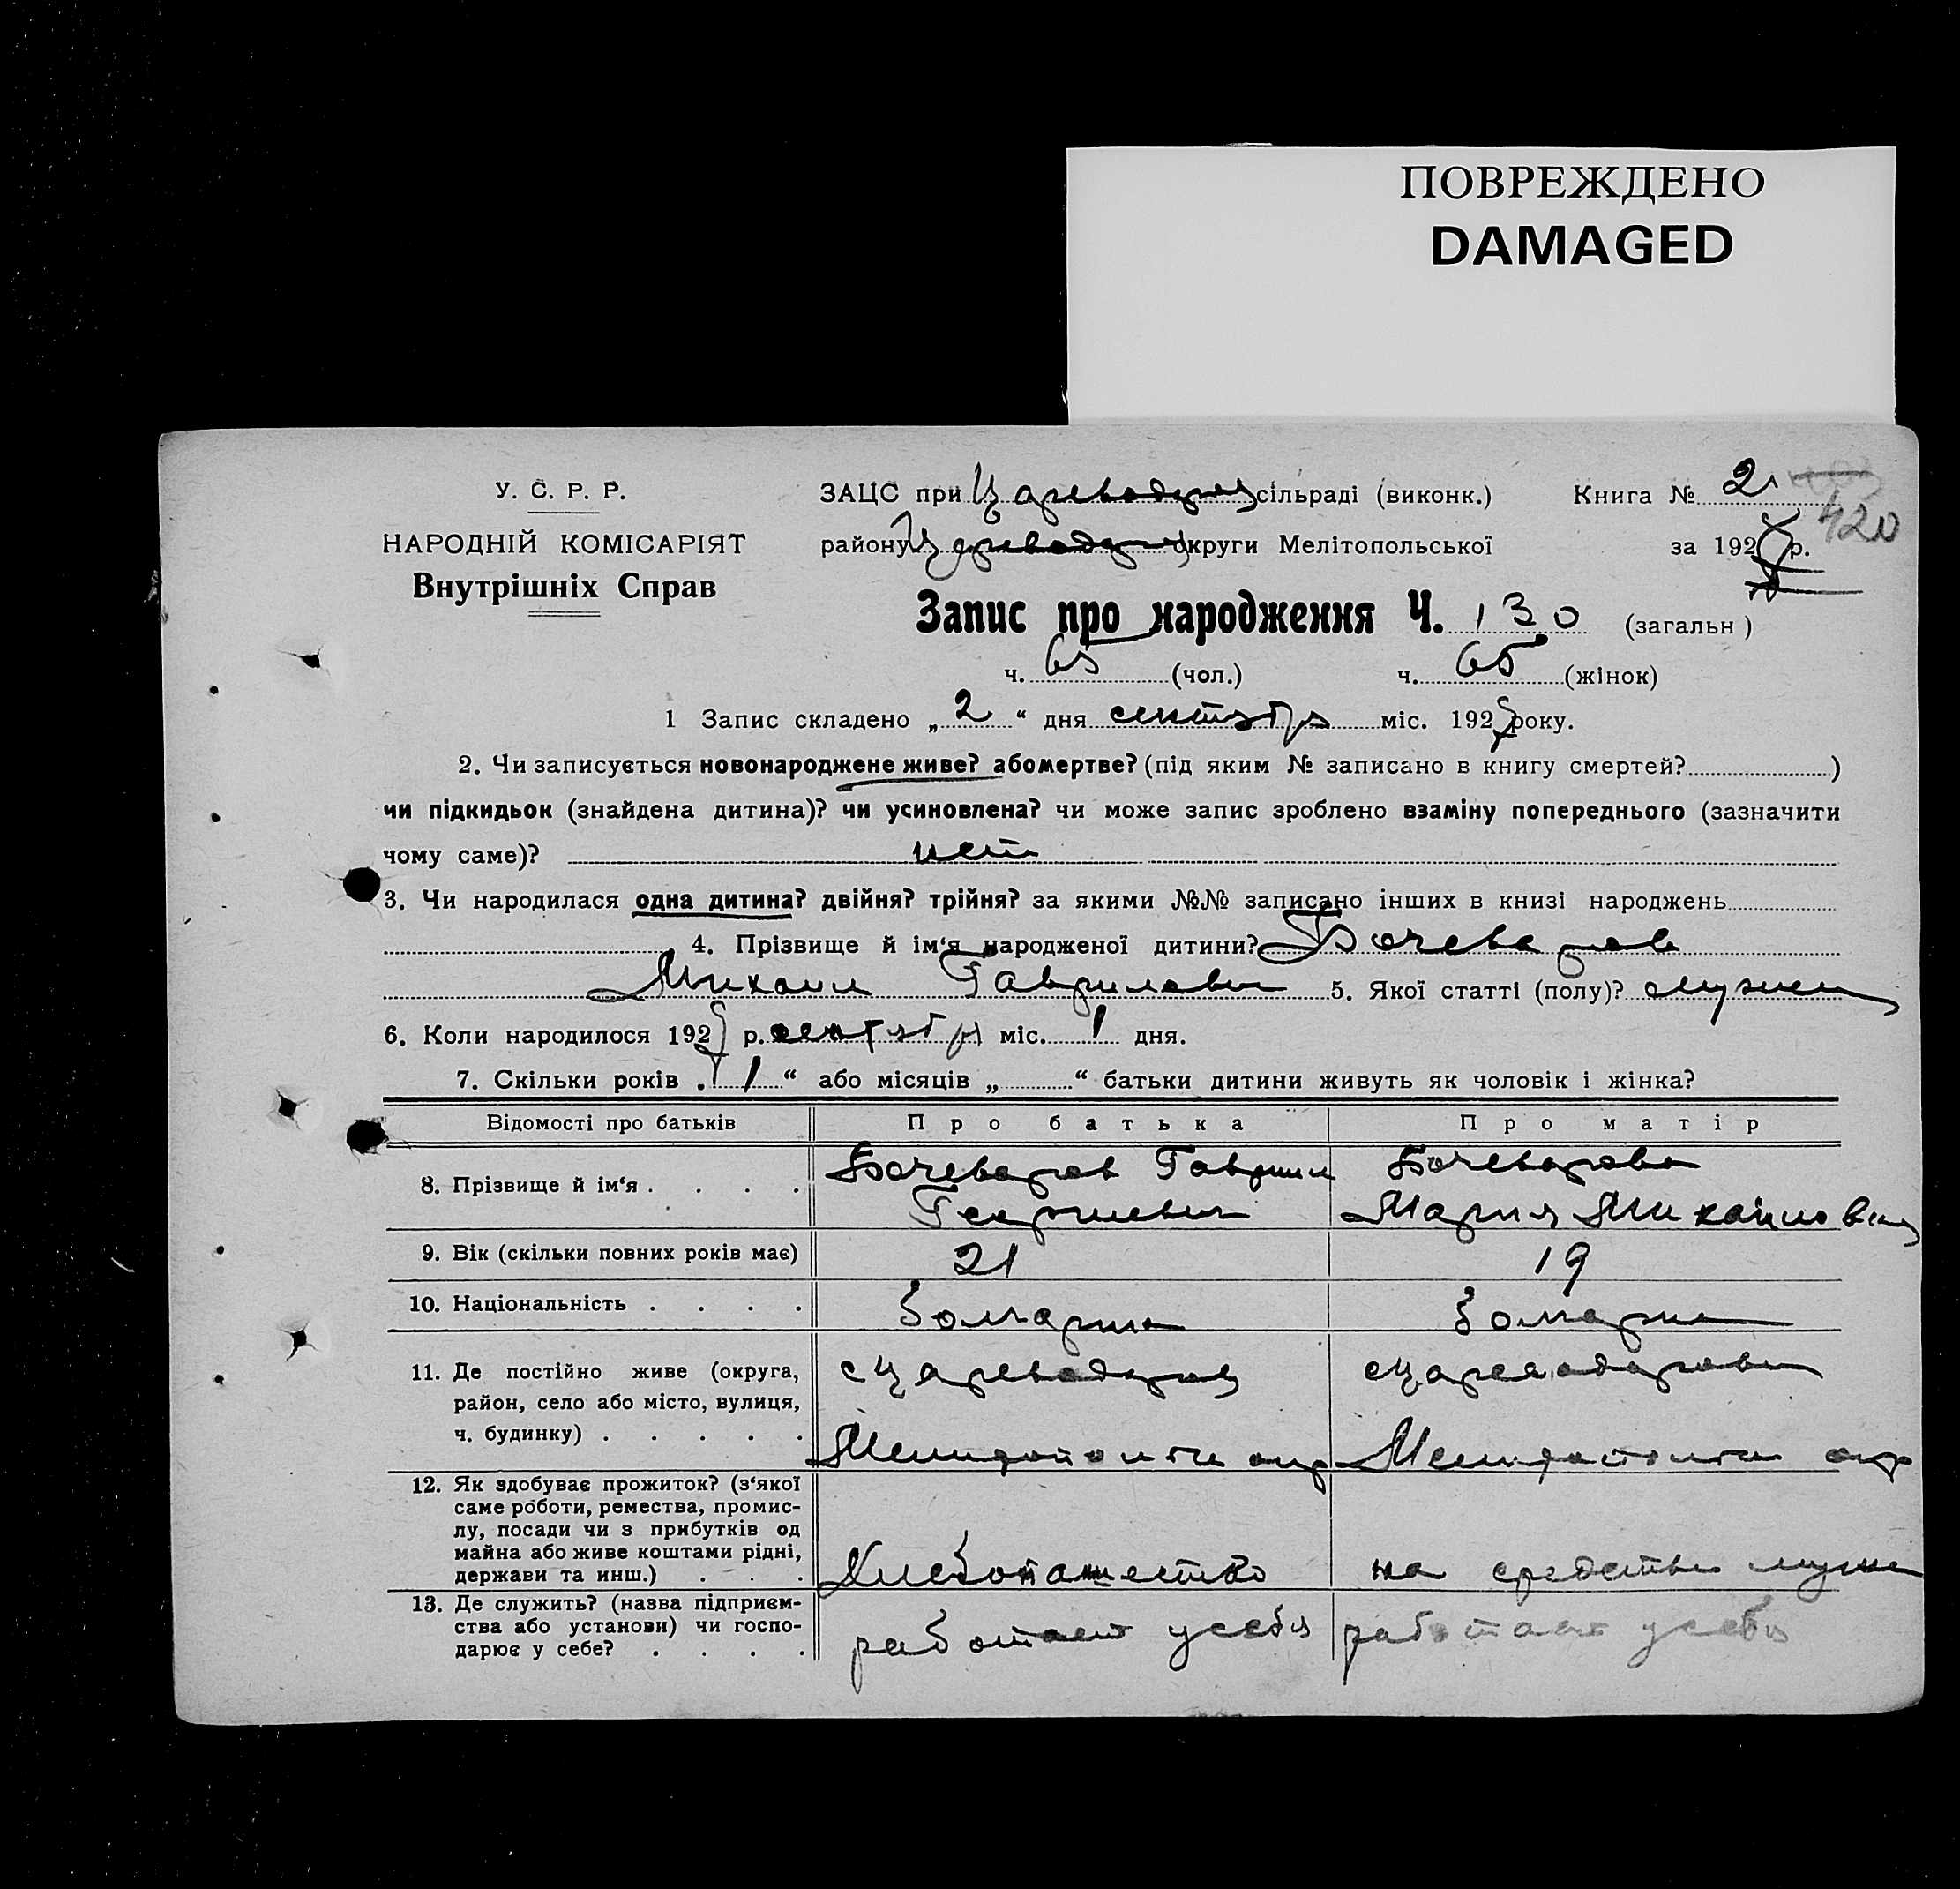 ПОВРЕЖДЕНО
DAMAGED
У. С. Р. Р.
НАРОДНІЙ КОМІСАРІЯТ
Внутрішніх Справ
ЗАЦС при Цареводар сільраді (виконк.)
Книга № 2
420
району Цареводар округи Мелітопольської
за 192 р.
Запис про народження Ч. 130 (загальн )
ч. 65 (чол.) ч. 65 (жінок)
1 Запис складено „ 2 “ дня сентября міс. 192 року.
2. Чи записується новонароджене живе? абомертве? (під яким № записано в книгу смертей? )
чи підкидьок (знайдена дитина)? чи усиновлена? чи може запис зроблено взаміну попереднього (зазначити
чому саме)? нет
3. Чи народилася одна дитина? двійня? трійня? за якими №№ записано інших в книзі народжень
4. Прізвище й ім‘я народженої дитини? Бочеваров
Михаил Гаврилович 5. Якої статті (полу)? мужск
6. Коли народилося 192 р. сентября міс. 1 дня.
7. Скільки років „ 1 “ або місяців „ “ батьки дитини живуть як чоловік і жінка?
Відомості про батьків Про батька Про матір
8. Прізвище й ім‘я . . . . Бочеваров Гаврил Бочеварова
Георгиевич Мария Михайловна
9. Вік (скільки повних років має) 21 19
10. Національність . . . . болгарин болгарка
11. Де постійно живе (округа,
район, село або місто, вулиця,
ч. будинку) . . . . .
с Цареводар с Цареводаровка
Мелитопольск окр Мелитопольск окр
12. Як здобуває прожиток? (з‘якої
саме роботи, ремества, промис-
лу, посади чи з прибутків од
майна або живе коштами рідні,
держави та инш.) . . .
Хлебопашество на средства мужа
13. Де служить? (назва підприєм-
ства або установи) чи госпо-
дарює у себе? . . . .
работает у себя работает у себя